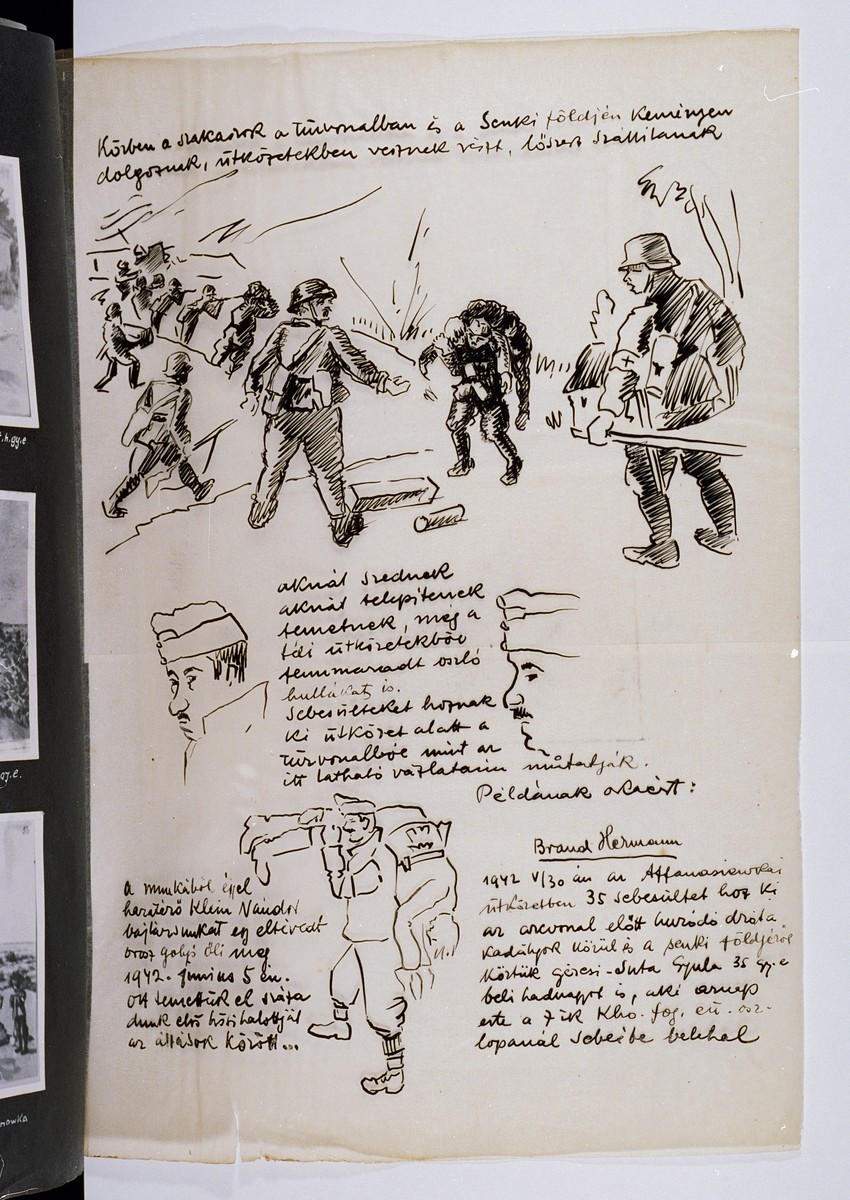 Közben a szakaszok a tűzvonalban és a Senki földjén keményen
dolgoznak, ütközetekben vesznek részt, lőszert szállítanak
aknát szednek
aknát telepítenek
temetnek, még a
téli ütközetekből
fennmaradt oszló
hullákat is.
Sebesülteket hoznak
ki ütközet alatt a
tűzvonalból mint az
itt látható vázlataim mutatják.
Példának okáért:
Brand Hermann
1942 V/30 án az Affanasiewkai
ütközetben 35 sebesültet hoz ki
az arcvonal előtt huzódó drót a
kadályok körül és a senki földjéről
köztük gércsi-Suta Gyula 35 gy.e
beli hadnagyot is, aki aznap
este a 7 ik kho. fog. eü. osz-
lopánál sebeibe belehal
a munkából éjjel
hazatérő Klein Nándor
bajtársunkat egy eltévedt
orosz golyó öli meg
1942. Junius 5 én.
Ott temettük el száza
dunk első hősi halottját
az állások között...
t.h.gy.e
gy.e.
nowka